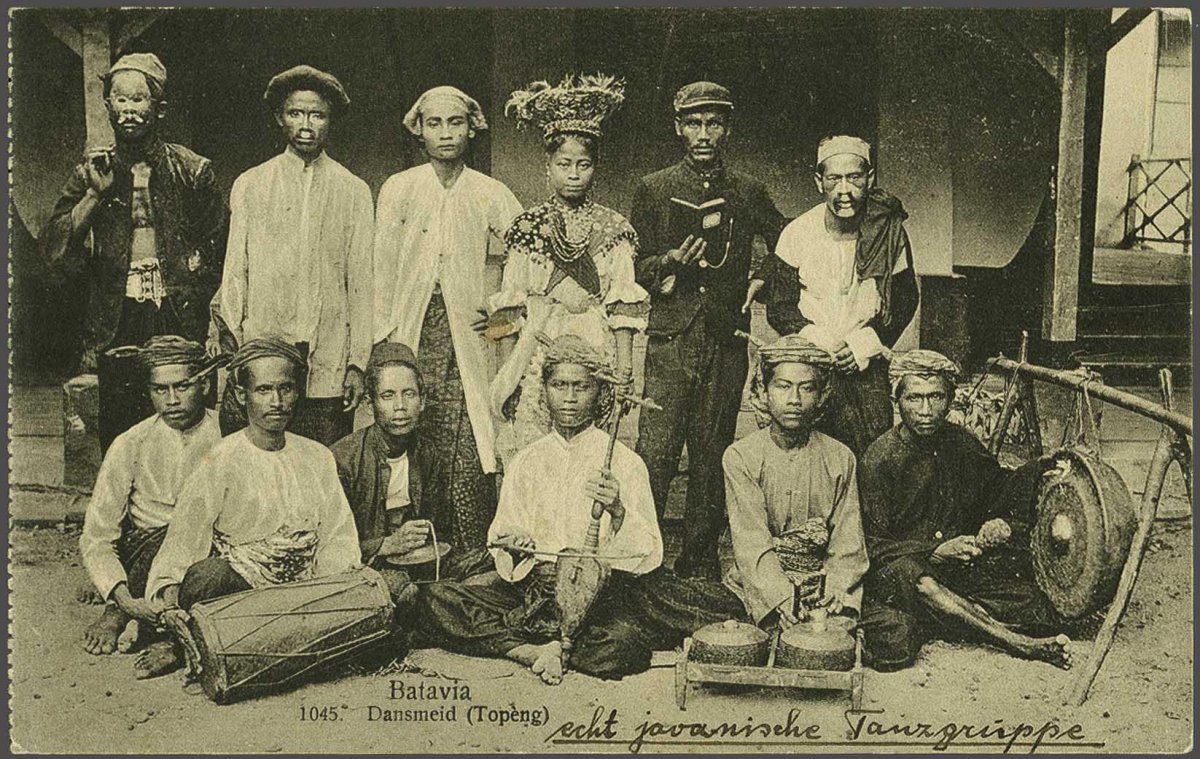 Batavia
1045. Dansmeid (Topèng)
echt javanische Tanzgruppe